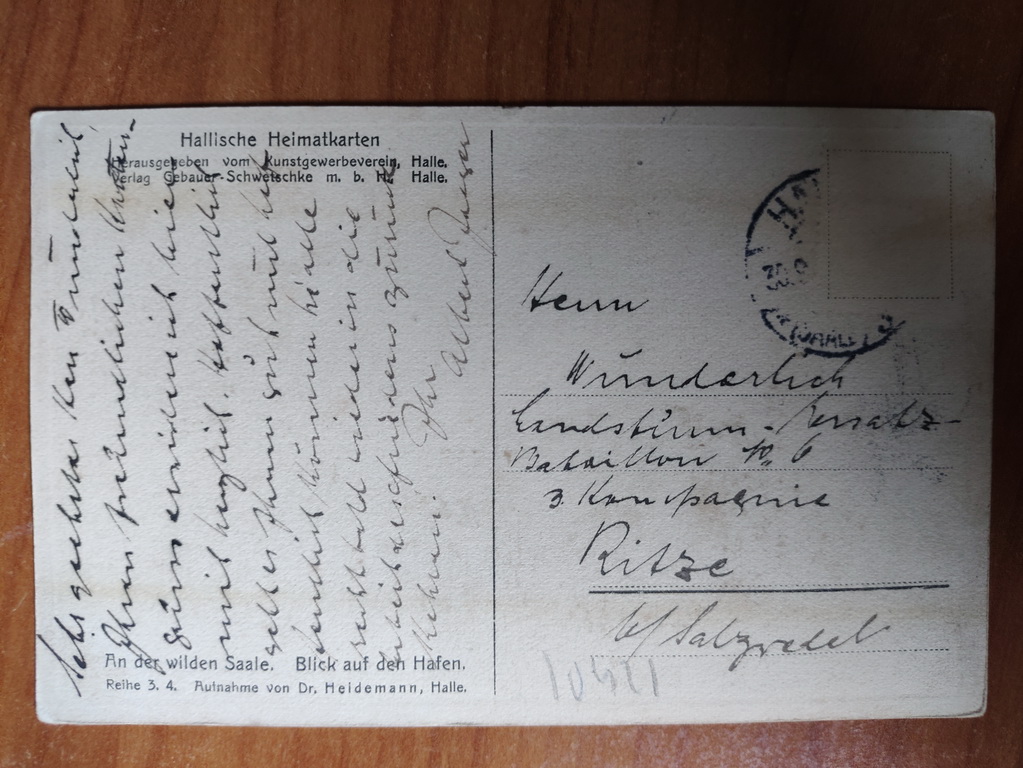 Hallische Heimatkarten
Herausgegeben vom Kunstgewerbeverein, Halle.
Verlag Gebauer-Schwetschke m. b. H. Halle.
Sehr geehrter Herr Wunderlich!
Ihren freundlichen Karten-
gruss erwidere ich hier
mit herzlich. Hoffentlich
geht es Ihnen gut und hof-
fentlich können Sie alle
recht bald wieder in die
zurück
kehren. Ihr
Albert
An der wilden Saale. Blick auf den Hafen.
Reihe 3. 4. Aufnahme von Dr. Heidemann, Halle.
Herrn
Wunderlich
Landsturm-Ersatz-
Bataillon No 6
3. Kompagnie
Ritze
b/ Salzwedel
(SAALE)